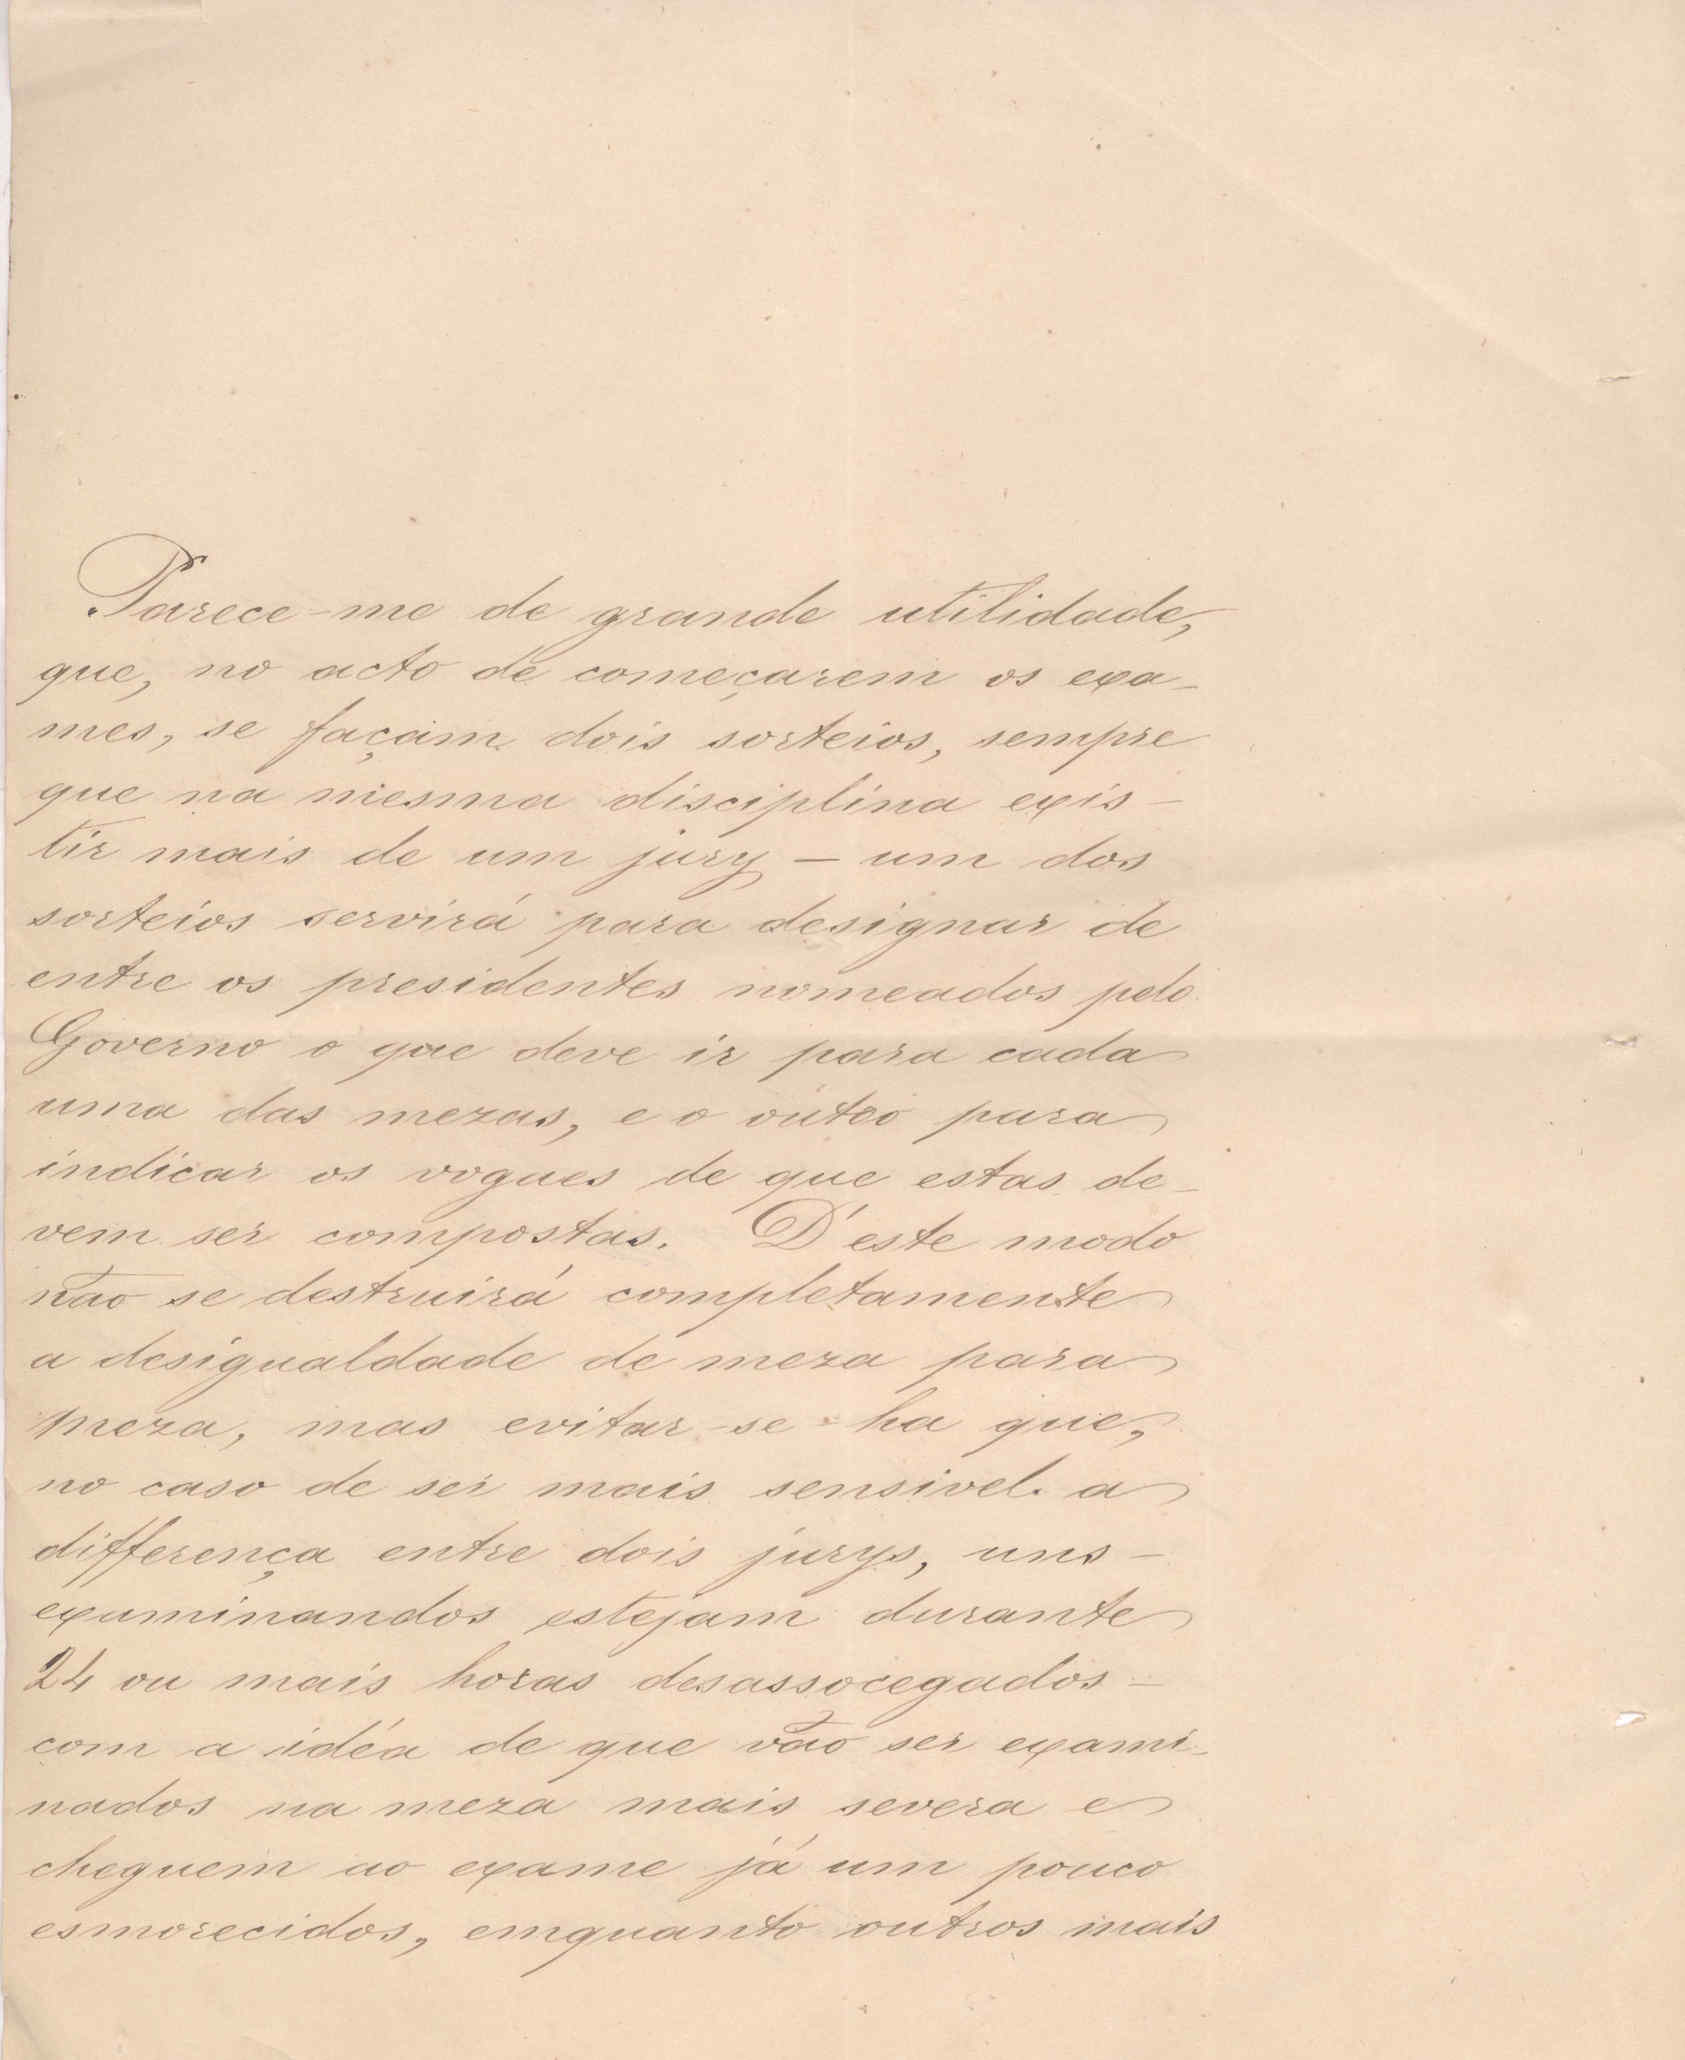 Parece-me de grande utilidade,
que, no acto de começarem os exa-
mes, se façam dois sorteios, sempre
que na mesma disciplina exis-
tir mais de um jury — um dos
sorteios servirá para designar de
entre os presidentes nomeados pelo
Governo o que deve ir para cada
uma das mezas, e o outro para
indicar os vogues de que estas de-
vem ser compostas. D'este modo
não se destruirá completamente
a desigualdade de meza para
meza, mas evitar-se-ha que,
no caso de ser mais sensivel a
differença entre dois jurys, uns-
examinandos estejam durante
24 ou mais horas desassocegados-
com a idéa de que vão ser exami-
nados na meza mais severa e
cheguem ao exame já um pouco
esmorecidos, emquanto outros mais